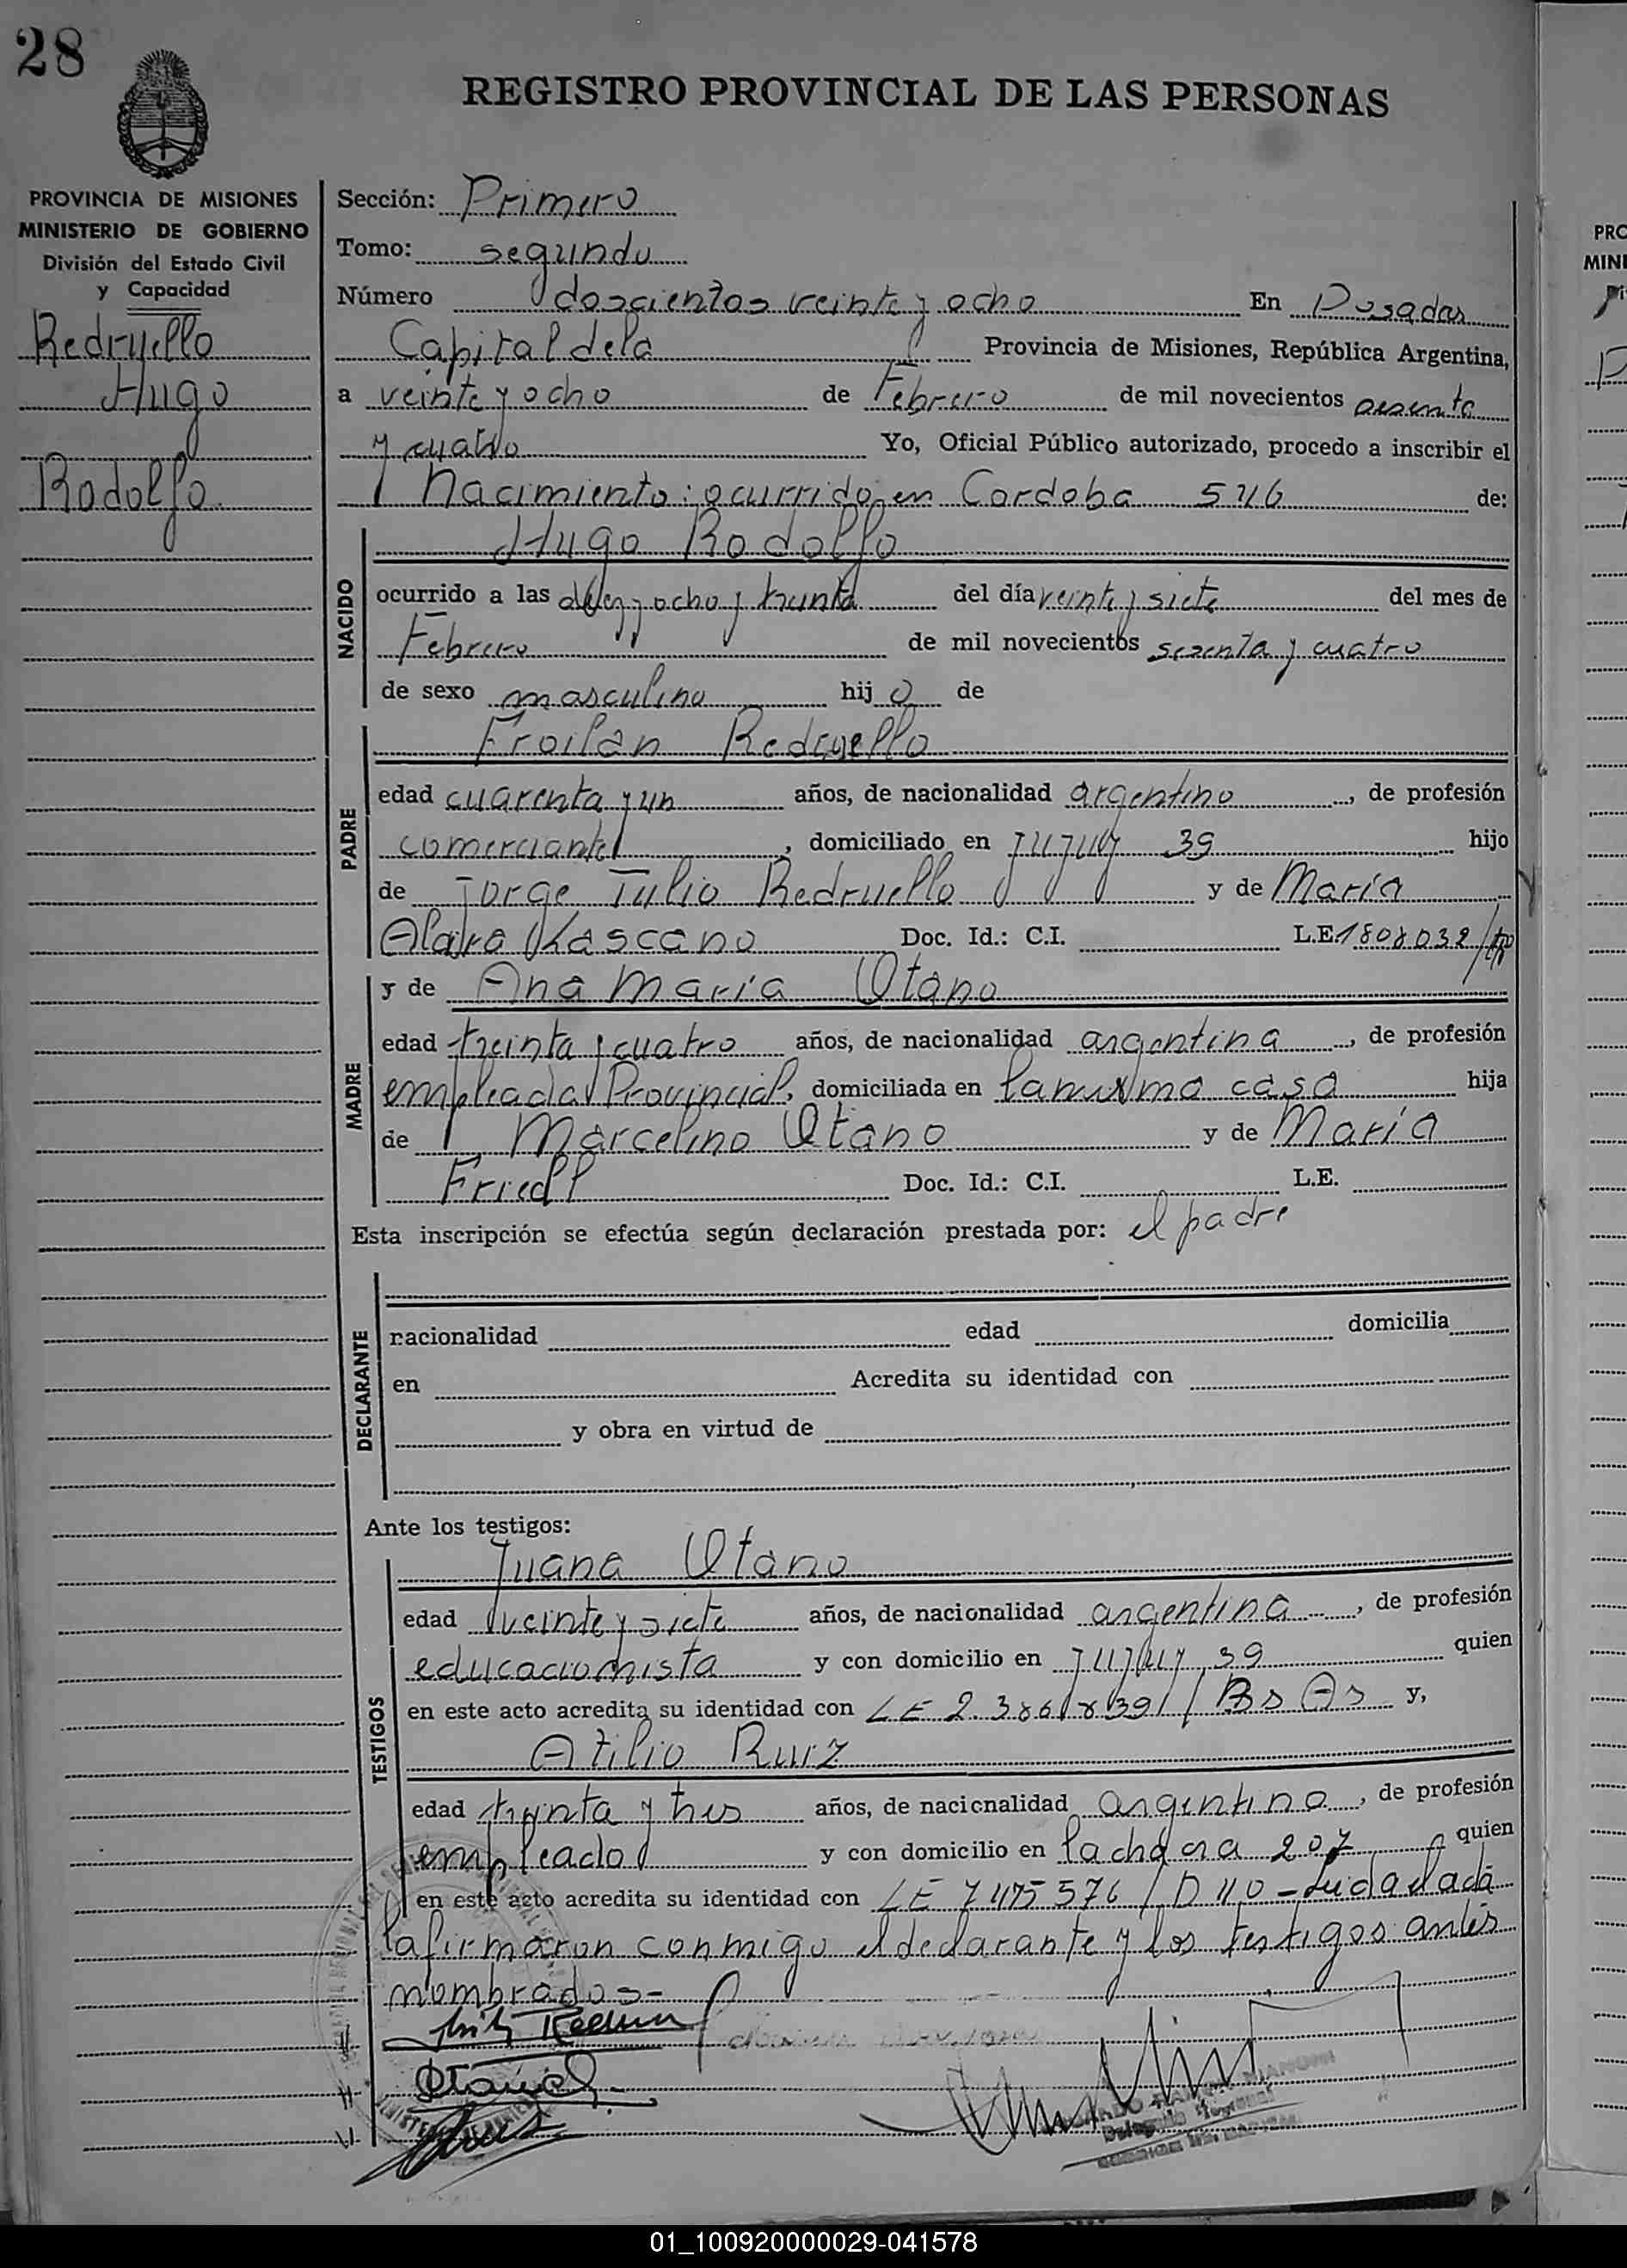 28
REGISTRO PROVINCIAL DE LAS PERSONAS
PROVINCIA DE MISIONES
MINISTERIO DE GOBIERNO
División del Estado Civil
y Capacidad
Redruello
Hugo
Rodolfo
Sección: Primero
Tomo: segundo
Número doscientos veinte y ocho En Posadas
Capital de la Provincia de Misiones, República Argentina,
a veinte y ocho de Febrero de mil novecientos sesenta
y cuatro Yo, Oficial Público autorizado, procedo a inscribir el
Nacimiento: ocurrido en Cordoba 546 de:
NACIDO
Hugo Rodolfo
ocurrido a las diez y ocho y treinta del día veinte y siete del mes de
Febrero de mil novecientos sesenta y cuatro
de sexo masculino hijo de
PADRE
Froilan Redruello
edad cuarenta y un años, de nacionalidad argentino, de profesión
comerciante, domiciliado en Jujuy 39 hijo
de Jorge Tulio Redruello y de María
Lascano Doc. Id.: C.I. L.E. 1808032
MADRE
y de Ana María Otaño
edad treinta y cuatro años, de nacionalidad argentina, de profesión
empleada Provincial, domiciliada en la misma casa hija
de Marcelino Otaño y de María
Friedl Doc. Id.: C.I. L.E.
Esta inscripción se efectúa según declaración prestada por: el padre
DECLARANTE
nacionalidad edad domicilia
en Acredita su identidad con
y obra en virtud de
Ante los testigos:
TESTIGOS
Juana Otaño
edad veinte y siete años, de nacionalidad argentina, de profesión
educacionista y con domicilio en Jujuy 39 quien
en este acto acredita su identidad con LE 2.386.839 / Bs As y,
Atilio Ruiz
edad treinta y tres años, de nacionalidad argentino, de profesión
empleado y con domicilio en la chacra 207 quien
en este acto acredita su identidad con LE 7475576 / D 40 - Leida el acta
la firmaron conmigo el declarante y los testigos antes
nombrados-
PRO
MINI
01_100920000029-041578